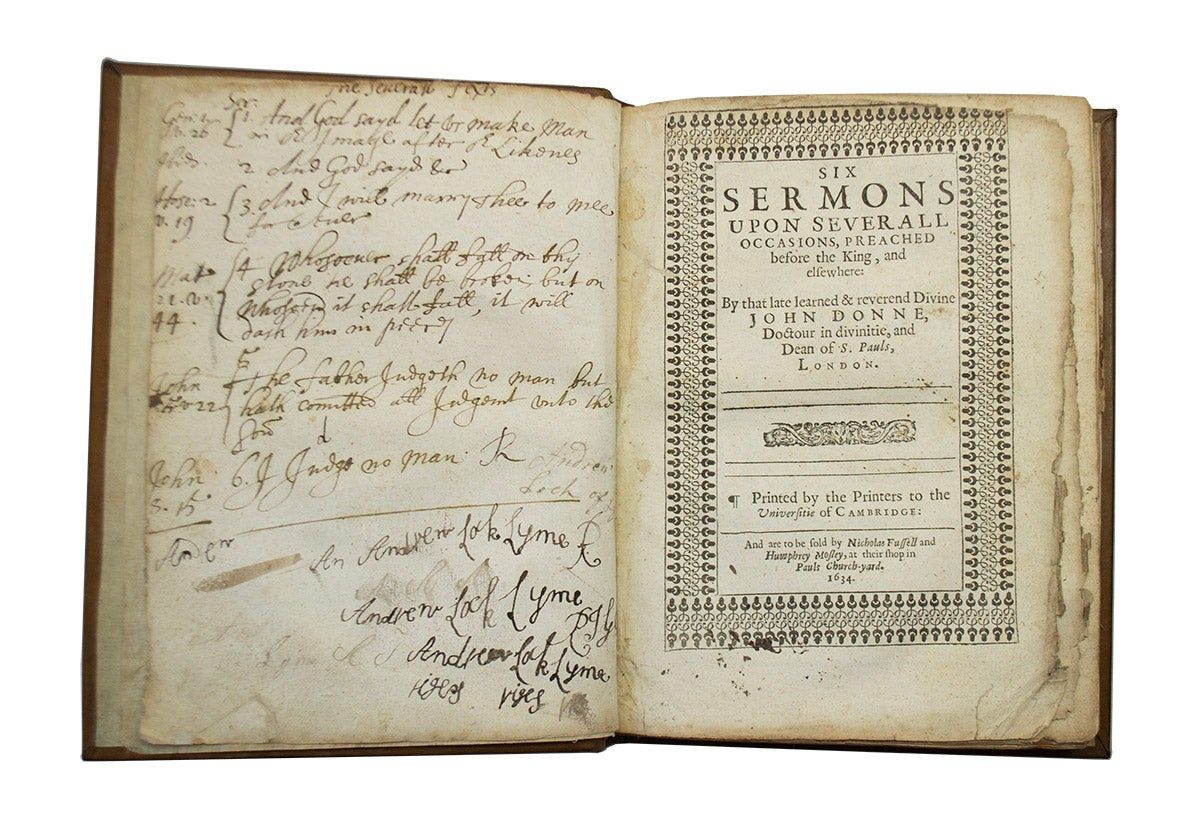 The severall Texts
Gen: 1 Ser. 1. And God sayd let us make Man
v. 26 in our Image after our Likenes
Ibid. 2 And God sayd &c
Hose: 2 3. And I will marry thee to mee
v. 19 for ever
Mat 4 Whosoever shall fall on this
21. v. stone he shall be broken, but on
44. Whosoever it shall fall, it will
dash him in peeces
5
John The father Judgeth no man but
v 22 hath comitted all Judgemt unto the
Son
John 6. I Judge no man. R Andrew
8. 15 Lock of
Andrew
An Andrew Lok Lyme R
Andrew Lock Lyme
Lyme Andrew Lok Lyme
SIX
SERMONS
UPON SEVERALL
OCCASIONS, PREACHED
before the King, and
elsewhere:
By that late learned & reverend Divine
JOHN DONNE,
Doctour in divinitie, and
Dean of S. Pauls,
LONDON.
¶ Printed by the Printers to the
Universitie of CAMBRIDGE:
And are to be sold by Nicholas Fussell and
Humphrey Mosley, at their shop in
Pauls Church-yard.
1634.